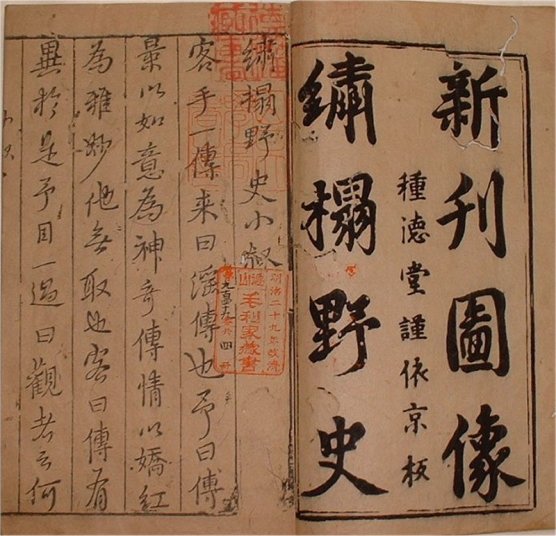 新刊圖像
種德堂謹依京板
繡榻野史
繡榻野史小敘
客手一傳來曰淫傳也予曰傳
景以如意為神奇傳情以嬌紅
為雅妙他無取也客曰傳有
異於是予目一過曰觀者云何
明治二十九年改濟
德山
毛利家藏書
四冊